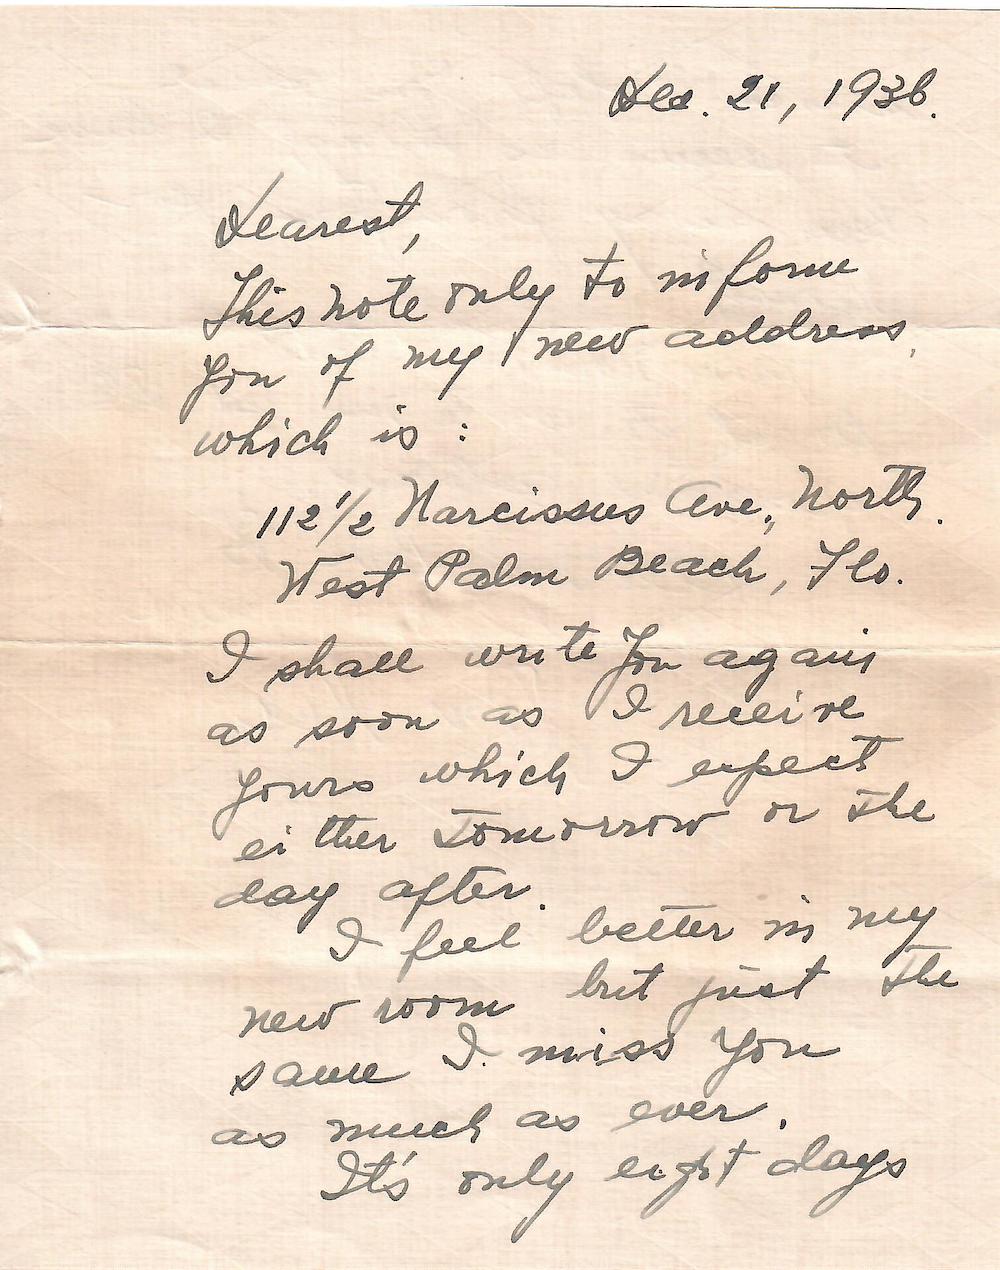 Dec. 21, 1936.
Dearest,
This note only to inform
you of my new address,
which is :
112 1/2 Narcissus Ave., North.
West Palm Beach, Flo.
I shall write you again
as soon as I receive
yours which I expect
either tomorrow or the
day after.
I feel better in my
new room but just the
same I miss you
as much as ever.
It's only eight days